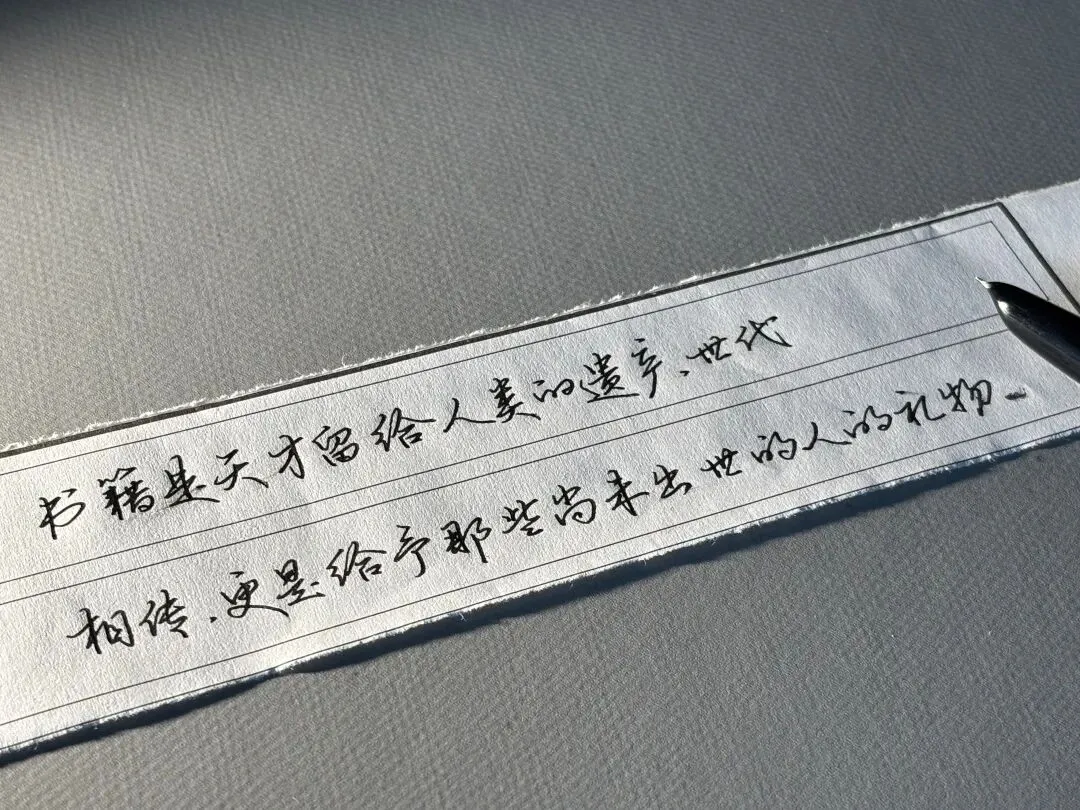 书籍是天才留给人类的遗产、世代
相传.更是给予那些尚未出世的人的礼物_